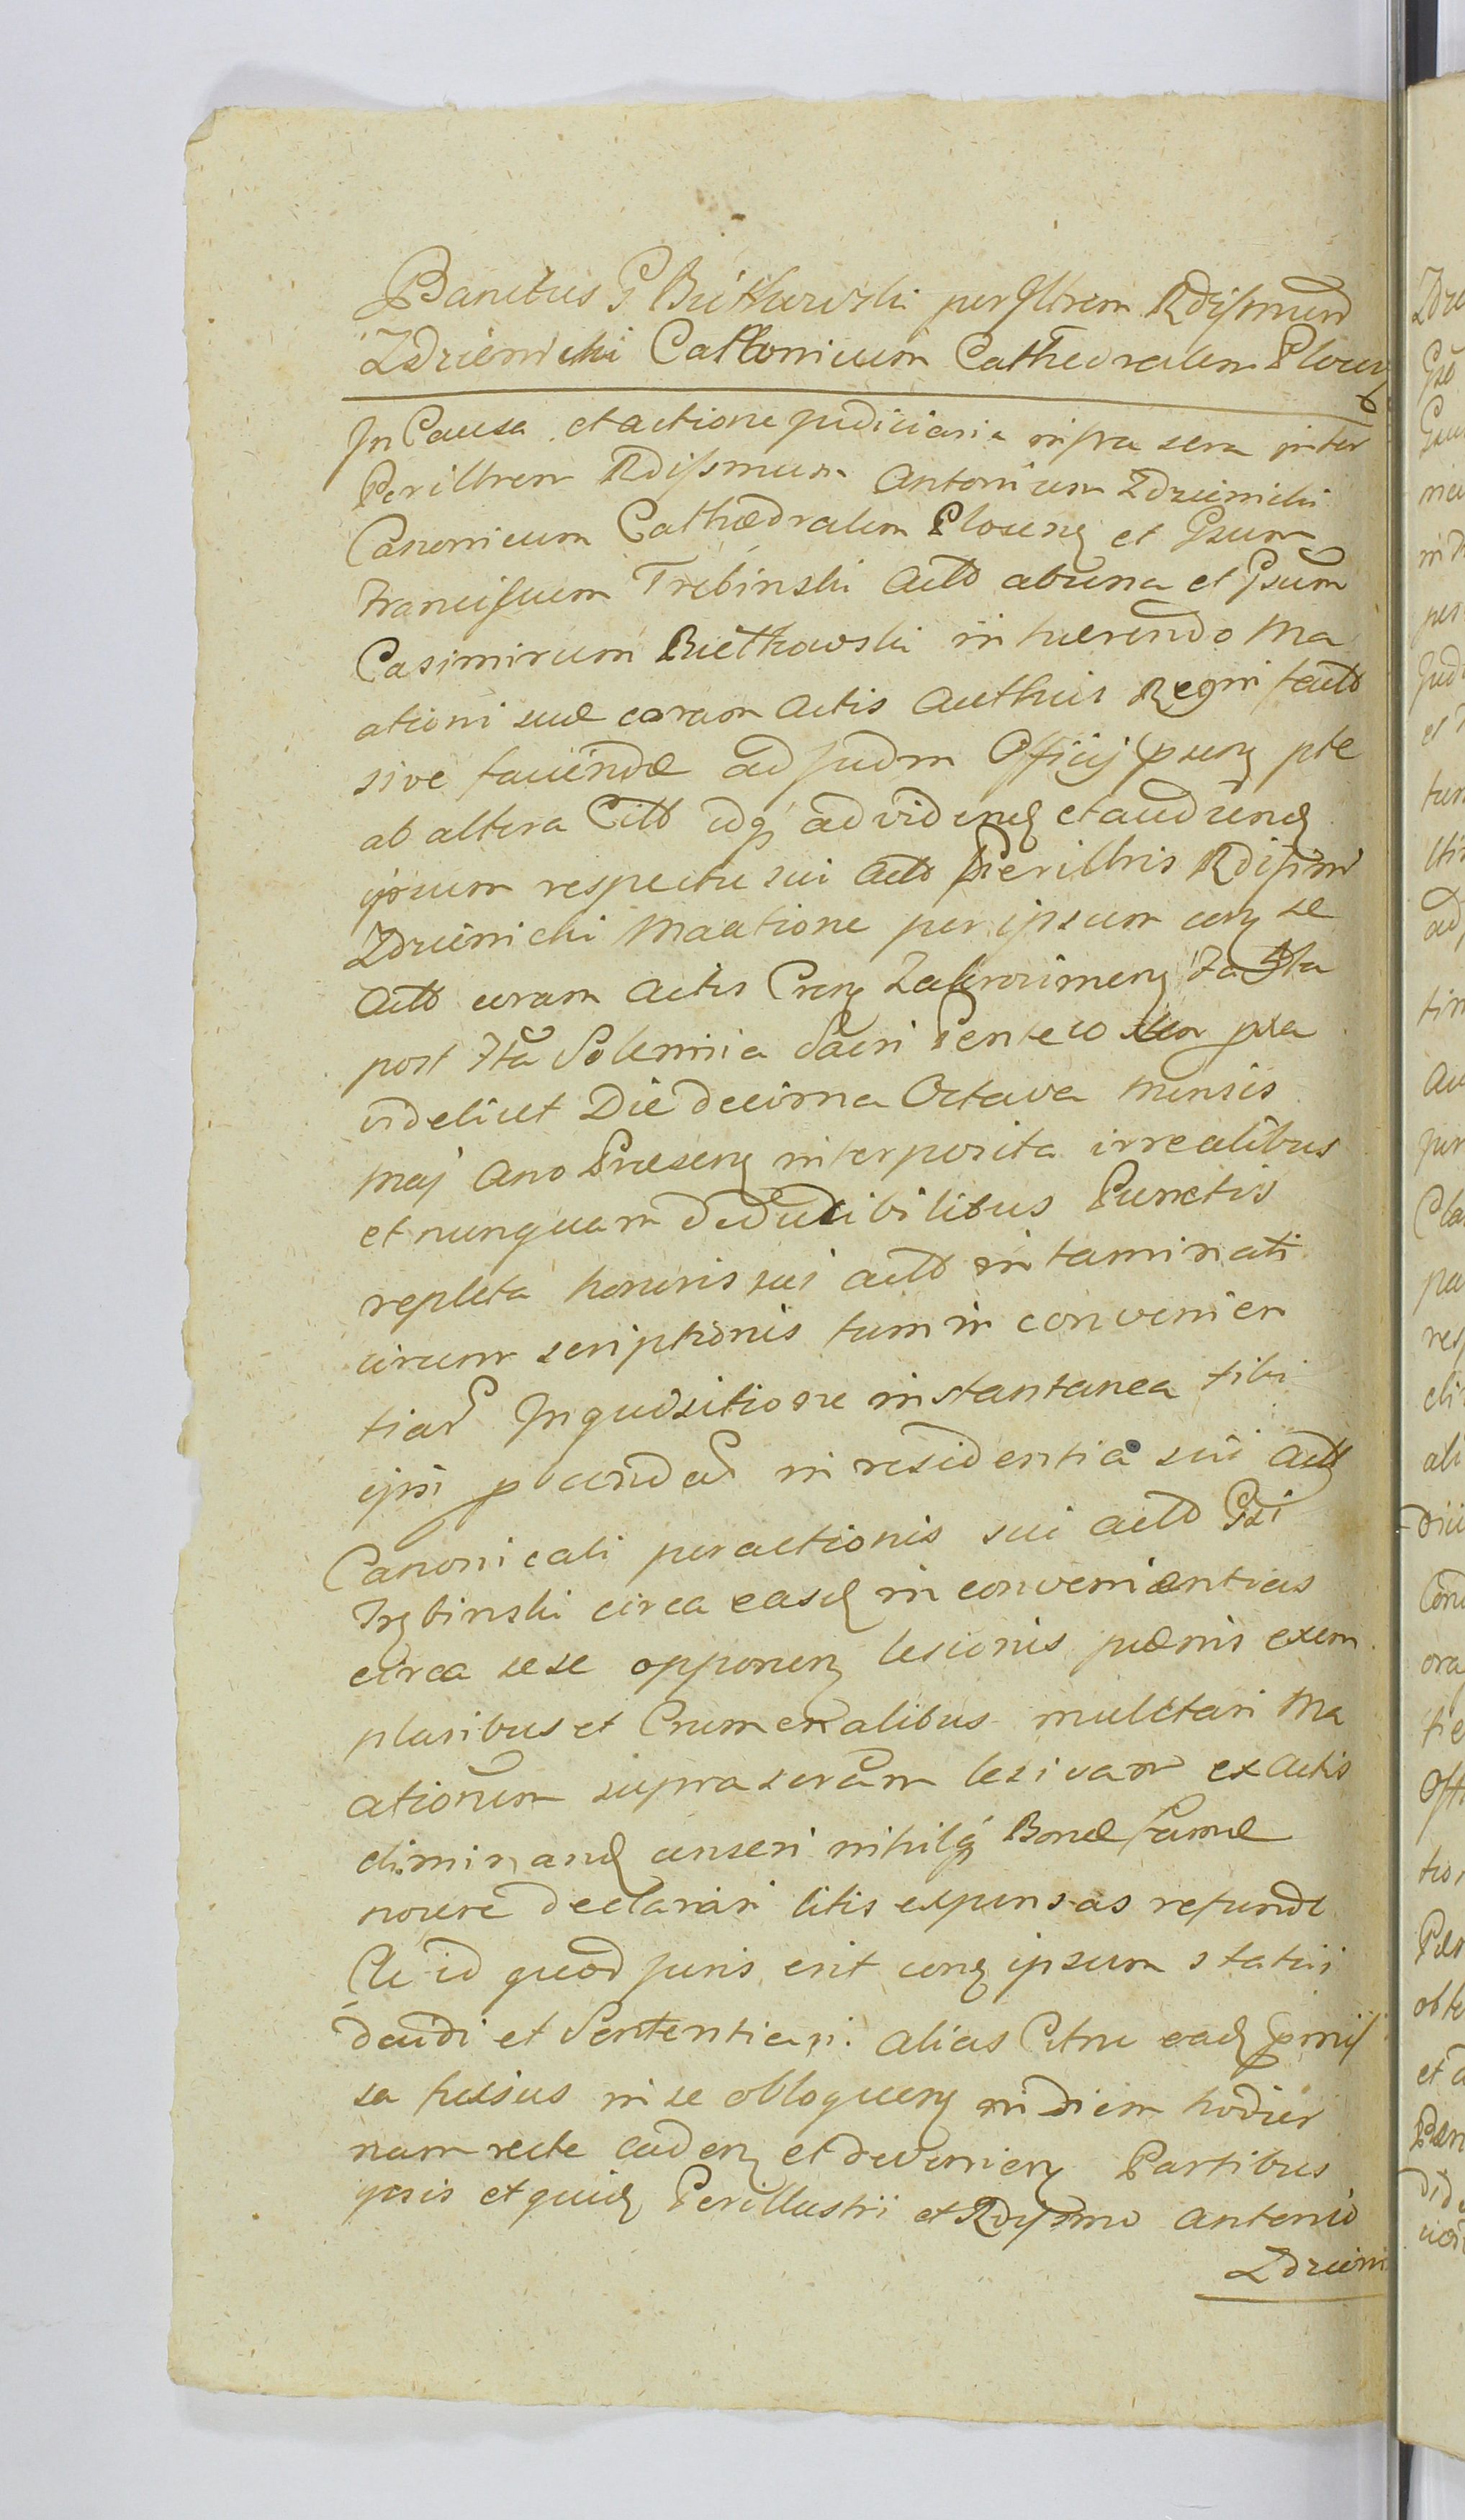 Banitus G Biethowski per Illrem Rdissmum
Zdziemichi Canonicum Cathedralem Plocen
In Causa et actione judiciaria infra scra inter
Perillrem Rdissmum Antonium Zdziemichi
Canonicum Cathædralem Plocens et Gsum
Franciscum Trębinski Actt ab una et Gsum
Casimirum Biethowski in hærendo Ma
ationi suæ coram Actis Authcis Regni factt
sive faciendæ ad Judm Officij psens pte
ab altera Citt idq ad videnđ et audiend
ipsum respectu sui Actt Perillris Rdissmi
Zdziemichi Maatione per ipsum cong se
Actt coram Actis Crens Zakroczimens Facta
post Fta Solemnia Sacri Pentecostes pxa
videlicet Die decima Octava mensis
Maj Ano Præsens interposita irrealibus
et nunquam deducibilibus Punctis
repleta honoris sui actt intaminati
circum scriptionis tum in convenien
tiar Inquisitione instantanea sibi
ipsi in residentia sui Actt
Canonicali peractionis sui actt Gsi
Trębinski circa easđ in convenientias
circa sese opponens lesionis pænis exem
plaribus et Crumenalibus mulctari Ma
ationem supra scram lesivam ex Actis
eliminanđ censeri nihilq Bonæ famæ
nocere declarari litis expensas refundi
Ac id quod juris erit cong ipsum statui
decidi et Sententiari. alias Citne eađ pmis
sa fusius in se obloquens in diem hodier
nam recte cadens et deveniens Partibus
ipsis et quiđ Perillustri et Rdissmo Antonio
Zdziemi